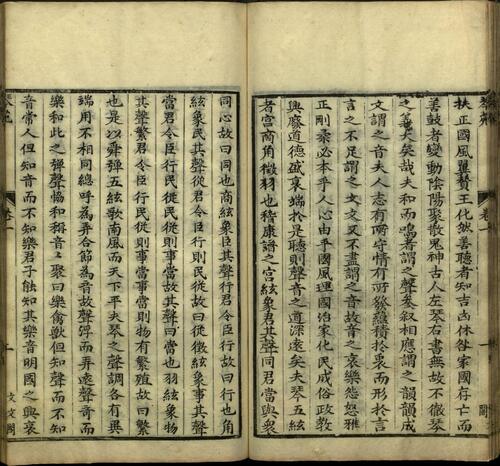 扶正國風翼贊王化然善聽者知吉凶休咎家國存亡而
善鼓者變動陰陽聚散鬼神古人左琴右書無故不徹琴
之義大矣哉夫和而鳴者謂之聲參叙相應謂之韻韻成
文謂之音夫人志有所守情有所發蘊積於衷而形於言
言之不足謂之文文又不盡謂之音故音之哀樂怨怒雅
正剛柔必本乎人心由乎國風運國治家化民成俗政教
興廢道德盛衰端於是聽則聲音之道深遠矣夫琴五絃
者宮商角徵羽也嵇康謂之宮絃象君其聲同君當與衆
同心故曰同也商絃象臣其聲行君令臣行故曰行也角
絃象民其聲從君令臣行則民從故曰從徵絃象事其聲
當君令臣行民從民從則事當故其聲曰當也羽絃象物
其聲繁君令臣行民從則事當事當則物有繁殖故曰繁
也是以舜彈五絃歌南風而天下平夫琴之聲調各有異
端用不相同總呼為弄合節為音故聲浮而弄遠聲音而
樂和此之彈聲暢和稱音聚曰樂禽獸但知聲而不知
音常人但知音而不知樂君子能知其樂音明國之興衰
卷一
一
卷一
一
文文閣